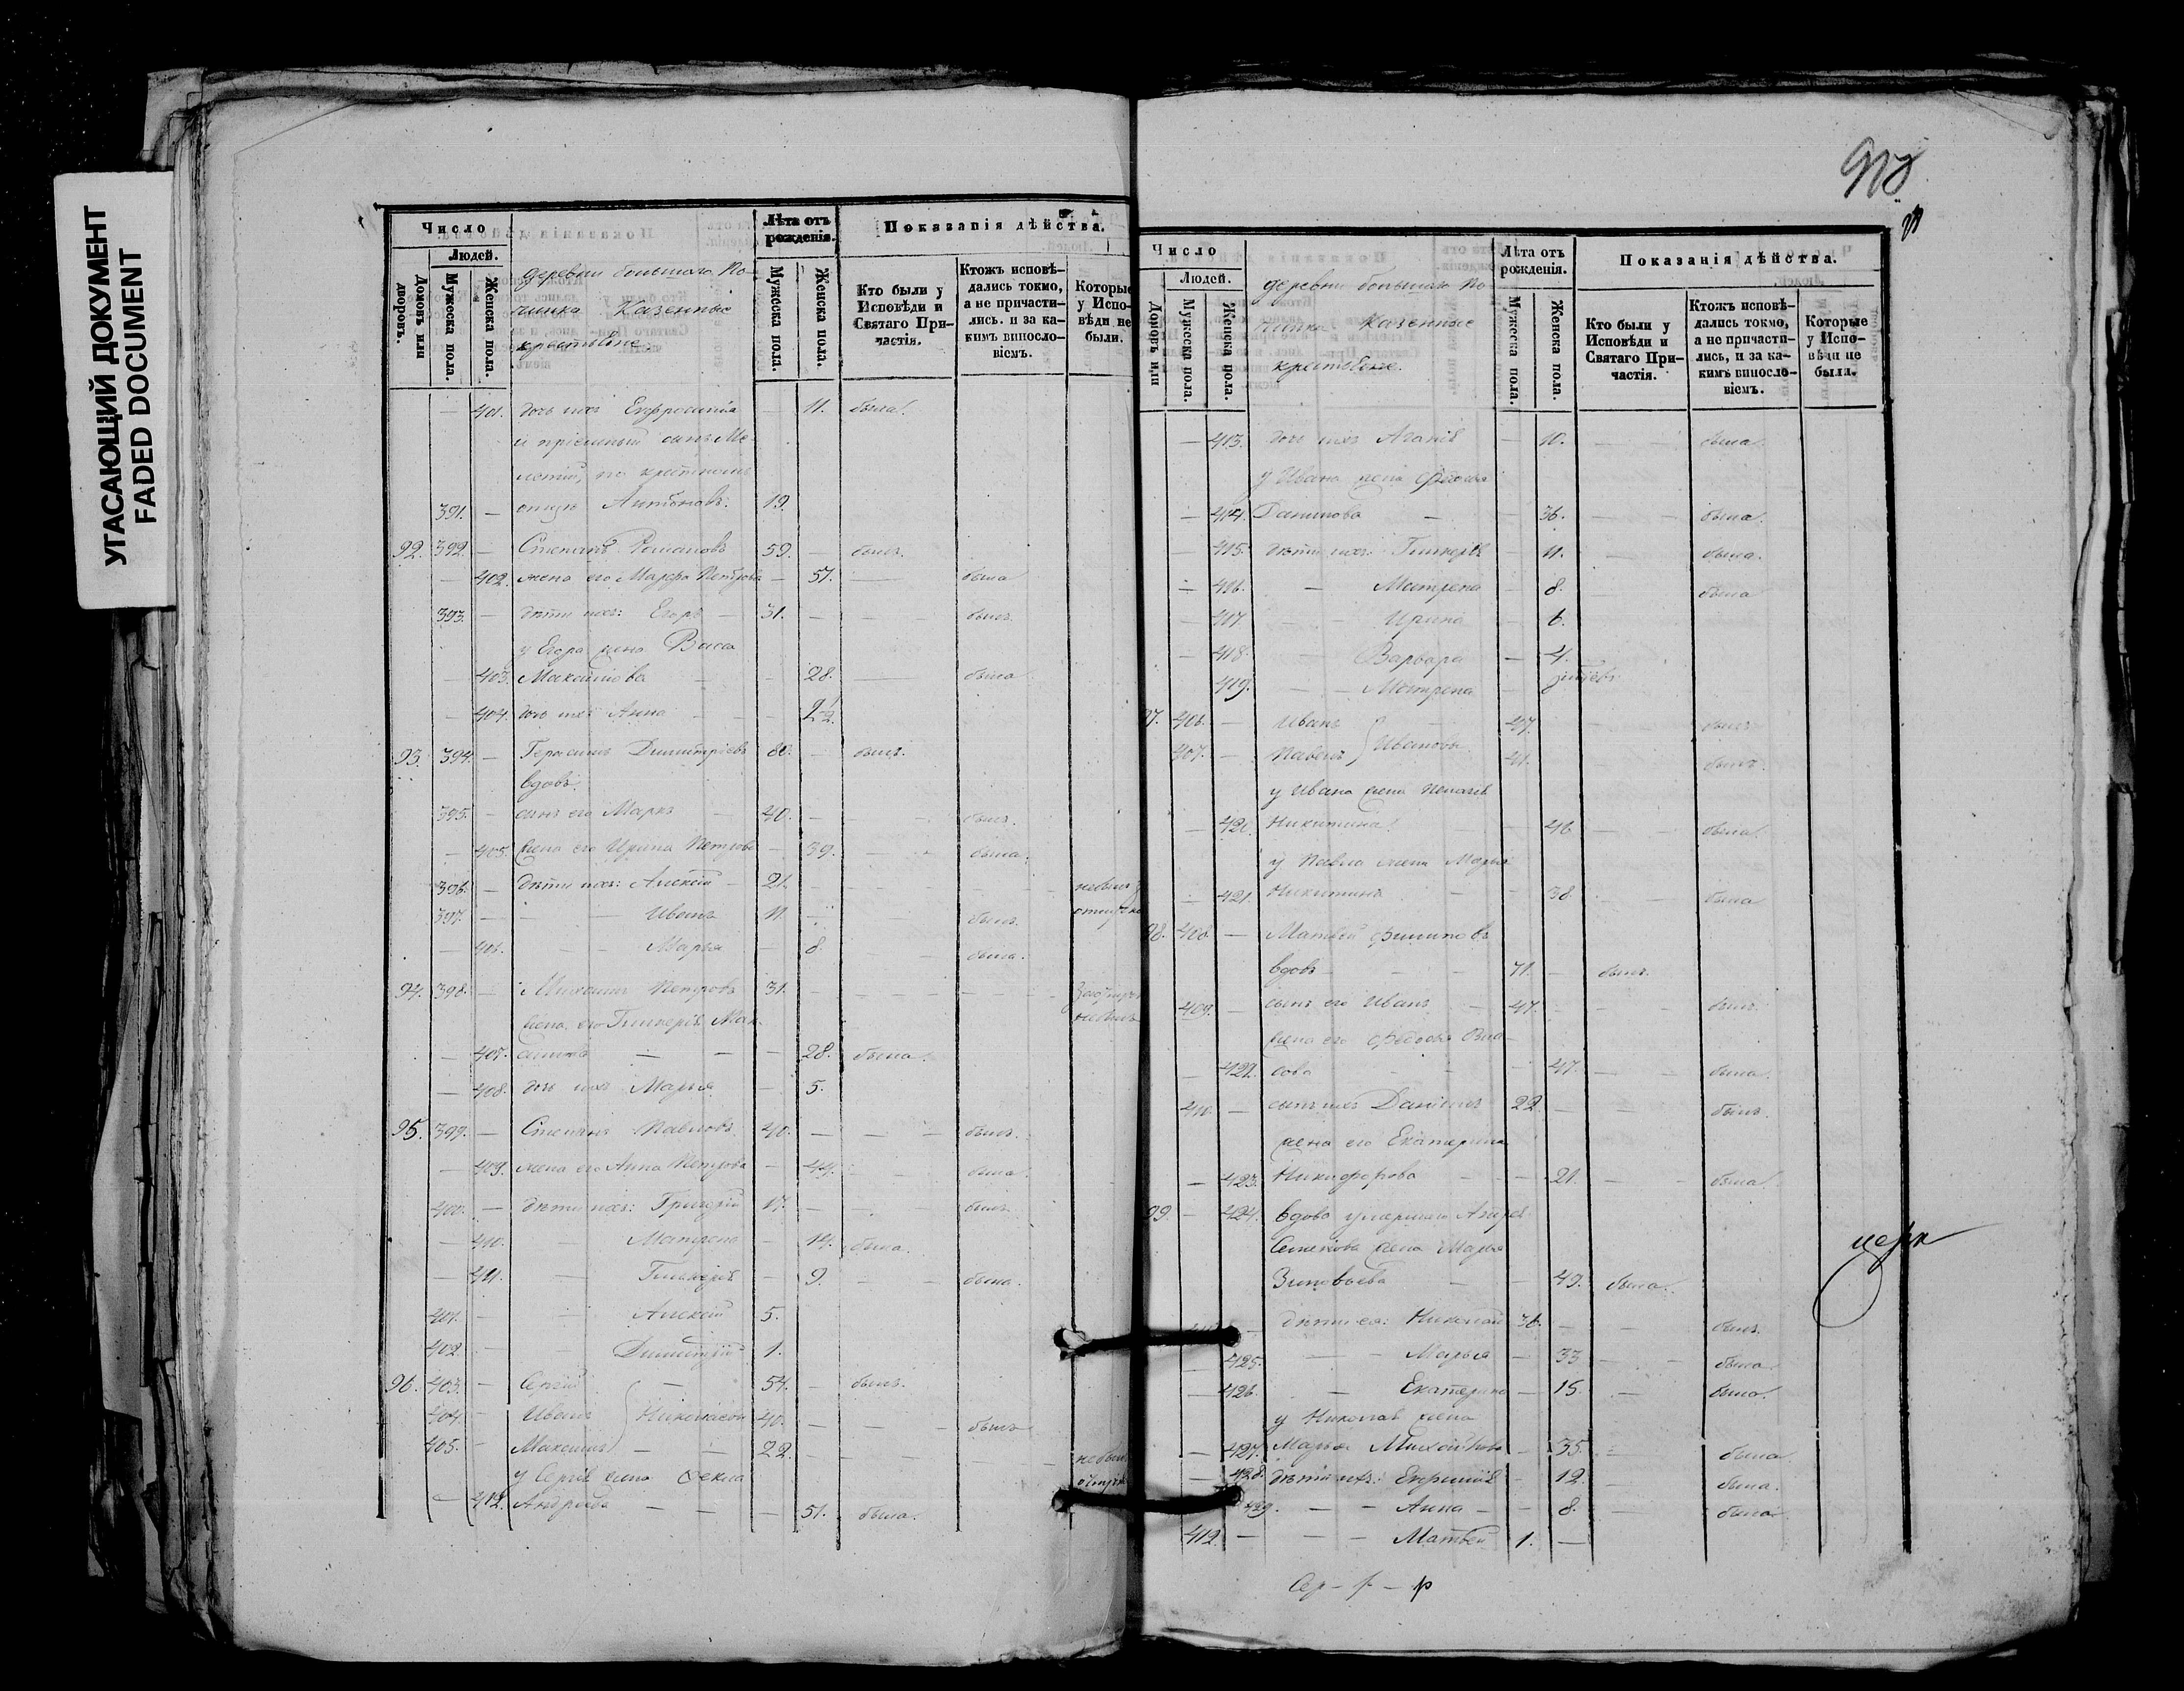 УГАСАЮЩИЙ ДОКУМЕНТ
FADED DOCUMENT
Число
Людей.
Домовъ или дворовъ.
Мужеска пола.
Женска пола.
деревни большаго По-
чинка Казенные
крестьяне.
Лѣта отъ рожденія.
Мужеска пола.
Женска пола.
Показанія дѣйства.
Кто были у Исповѣди и Святаго Причастія.
Ктожъ исповѣдались токмо, а не причастились. и за какимъ винословіемъ.
Которые у Исповѣди не были.
— 401. дочь ихъ Ефросинія — 11. была.
и пріемный сынъ Ме-
летій, по крестному
391. — отцу Антоновъ. 19.
92. 392. — Степанъ Романовъ 59. — былъ.
— 402. жена его Марѳа Петрова — 57. — была
393. — дѣти ихъ: Егоръ — 31. — — — былъ.
у Егора жена Васса
— 403. Максимова — — 28. — была
— 404. дочь ихъ Анна — — 2½.
93. 394. — Герасимъ Димитріевъ 80. — былъ.
вдовъ.
395. — сынъ его Маркъ — 40. — — — былъ.
— 405. жена его Ирина Петрова — 39. — — была.
396. — дѣти ихъ: Алексій — 21. — — — — небылъ
397. — — Иванъ 11. — былъ.
— 406. — — Марья — 8. — — была.
94. 398. — Михаилъ Петровъ 31. — — — — небылъ
жена его Гликерія Мак-
— 407. симова — — — 28. была.
— 408. дочь ихъ Марья — 5.
95. 399. — Степанъ Павловъ 40. — — — былъ.
— 409. жена его Анна Петрова — 44. — — была.
400. — дѣти ихъ: Григорій 17. — — — былъ.
— 410. — Матрена — 14. была.
— 411. — Гликерія — 9. — — была.
401. — — Алексій 5.
402. — — Димитрій 1.
96. 403. — Сергій — 54. — былъ.
404. — Иванъ Николаевы 40. — — — былъ
405. — Максимъ — — 22. — — — — небылъ
у Сергія жена Ѳекла
— 412. Андреева — — — 51. была.
Число
Людей.
Домовъ или
Мужеска пола.
Женска пола.
деревни большаго По-
чинка Казенные
крестьяне.
Лѣта отъ рожденія.
Мужеска пола.
Женска пола.
Показанія дѣйства.
Кто были у Исповѣди и Святаго Причастія.
Ктожъ исповѣдались токмо, а не причастились, и за какимъ винословіемъ.
Которые у Исповѣди не были.
— 413. дочь ихъ Агапія — 10. — — была.
у Ивана жена Ѳедосья
— 414. Данилова — — 36. — — была.
— 415. дѣти ихъ: Гликерія — 11. — — была.
— 416. — Матрена — 8. — — была
— 417. — — Ирина — 6.
— 418. — Варвара — 4.
419. — — Матрена —
97. 406. — Иванъ — 47. былъ
407. — Павелъ Ивановы 41. былъ.
у Ивана жена Пелагія
— 420. Никитина — — 46 — — была.
у Павла жена Марья
— 421. Никитина — — 38. — — была
98. 408. — Матвей Филиповъ
вдовъ — — — 71. — былъ.
409. — сынъ его Иванъ — 47. — — — былъ.
жена его Ѳедосья Вла-
— 422. сова — — — 47. — — была.
410. — сынъ ихъ Даніилъ 22. — — былъ.
жена его Екатерина
— 423. Никифорова — — 21. — — была.
99. — 424. вдова умершаго Андрея
Семенова жена Марья
Зиновьева — — 49. была.
дѣти ея: Николай 36. — — былъ.
425. — — Марья — 33 — — была.
— 426. — Екатерина — 15. — была.
у Николая жена
— 427. Марья Михайлова — 35. — была.
— 428. дѣти ихъ: Ефимія — 12. — была.
429. — — Анна — — 8. — была.
412. — — — Матвей 1. —